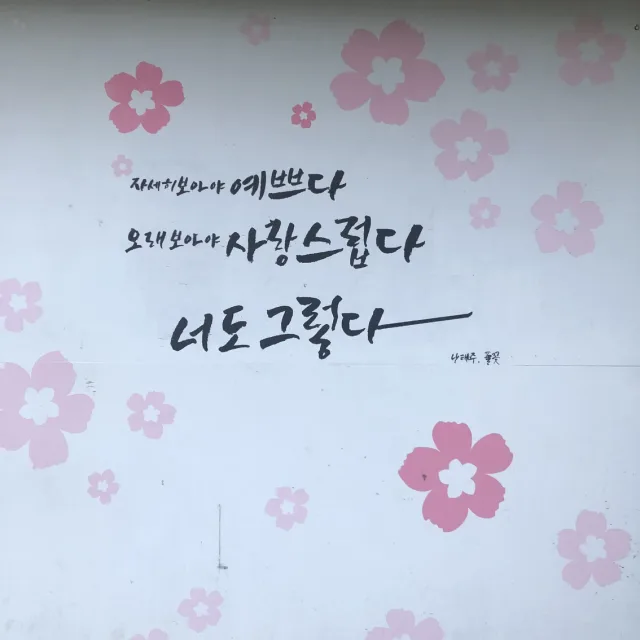 자세히보아야 예쁘다
오래보아야 사랑스럽다
너도 그렇다
나태주, 풀꽃